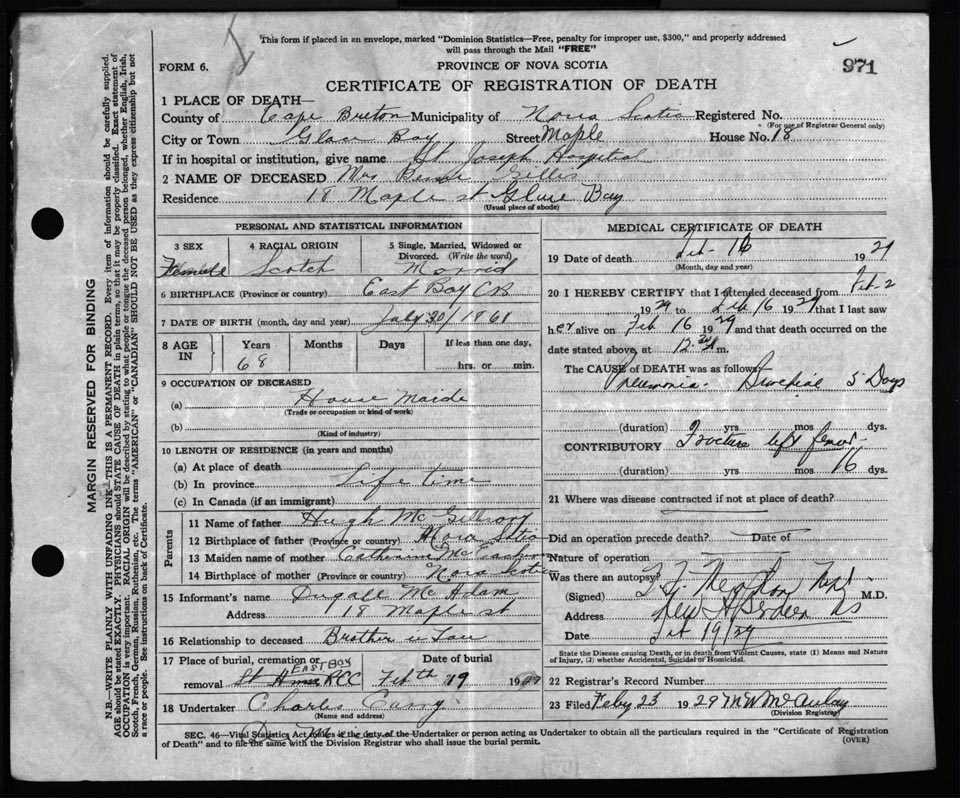 This form if placed in an envelope, marked "Dominion Statistics—Free, penalty for improper use, $300," and properly addressed
will pass through the Mail "FREE"
FORM 6.
PROVINCE OF NOVA SCOTIA
971
CERTIFICATE OF REGISTRATION OF DEATH
1 PLACE OF DEATH—
County of Cape Breton Municipality of Nova Scotia Registered No.
(For use of Registrar General only)
City or Town Glace Bay Street Maple House No. 18
If in hospital or institution, give name St. Joseph Hospital
2 NAME OF DECEASED Mrs Gillis
Residence 18 Maple st Glace Bay
(Usual place of abode)
PERSONAL AND STATISTICAL INFORMATION
3 SEX
Female
4 RACIAL ORIGIN
Scotch
5 Single, Married, Widowed or
Divorced. (Write the word)
Morrid
6 BIRTHPLACE (Province or country) East Bay CB
7 DATE OF BIRTH (month, day and year) July 30/1861
8 AGE
IN
Years
68
Months
Days
If less than one day,
hrs. or min.
9 OCCUPATION OF DECEASED
(a) House Maide
(Trade or occupation or kind of work)
(b)
(Kind of industry)
10 LENGTH OF RESIDENCE (in years and months)
(a) At place of death
(b) In province Life time
(c) In Canada (if an immigrant)
Parents
11 Name of father Hugh McGillvary
12 Birthplace of father (Province or country) Nova
13 Maiden name of mother Catherine McEachern
14 Birthplace of mother (Province or country) Nova Scotia
15 Informant's name Dugall McAdam
Address 18 Maple st
16 Relationship to deceased Brother in Law
17 Place of burial, cremation or
removal St RCC
EAST BAY
Date of burial
Feb th 19 1929
18 Undertaker Charles Curry
(Name and address)
MEDICAL CERTIFICATE OF DEATH
19 Date of death Feb 16 1929
(Month, day and year)
20 I HEREBY CERTIFY that I attended deceased from Feb-2
1929 to Feb 16 1929 that I last saw
her alive on Feb 16 1929 and that death occurred on
date stated above, at 12.30 m.
The CAUSE of DEATH was as follows
Pneumonia. 5 Days
(duration) yrs mos dys.
CONTRIBUTORY Fracture left femur
(duration) yrs mos 16 dys.
21 Where was disease contracted if not at place of death?
Did an operation precede death? — Date of —
Nature of operation
Was there an autopsy?
(Signed) M.D.
Address New Aberdeen NS
Date Feb 19/29
State the Disease causing Death, or in death from Violent Causes, state (1) Means and Nature
of Injury, (2) whether Accidental, Suicidal or Homicidal.
22 Registrar's Record Number
23 Filed Feby 23 1929 M W McAulay
(Division Registrar)
SEC. 46—Vital Statistics Act makes it the duty of the Undertaker or person acting as Undertaker to obtain all the particulars required in the "Certificate of Registration
of Death" and to file the same with the Division Registrar who shall issue the burial permit.
(OVER)
MARGIN RESERVED FOR BINDING
N.B.—WRITE PLAINLY WITH UNFADING INK—THIS IS A PERMANENT RECORD. Every item of information should be carefully supplied.
AGE should be stated EXACTLY. PHYSICIANS should STATE CAUSE OF DEATH in plain terms, so that it may be properly classified. Exact statement of
OCCUPATION is very important. RACIAL ORIGIN will be described by stating to what people or tongue the deceased person belonged, whether English, Irish,
Scotch, French, German, Russian, Ruthenian, etc. The terms "AMERICAN" or "CANADIAN" SHOULD NOT BE USED as they express citizenship but not
a race or people. See instructions on back of Certificate.